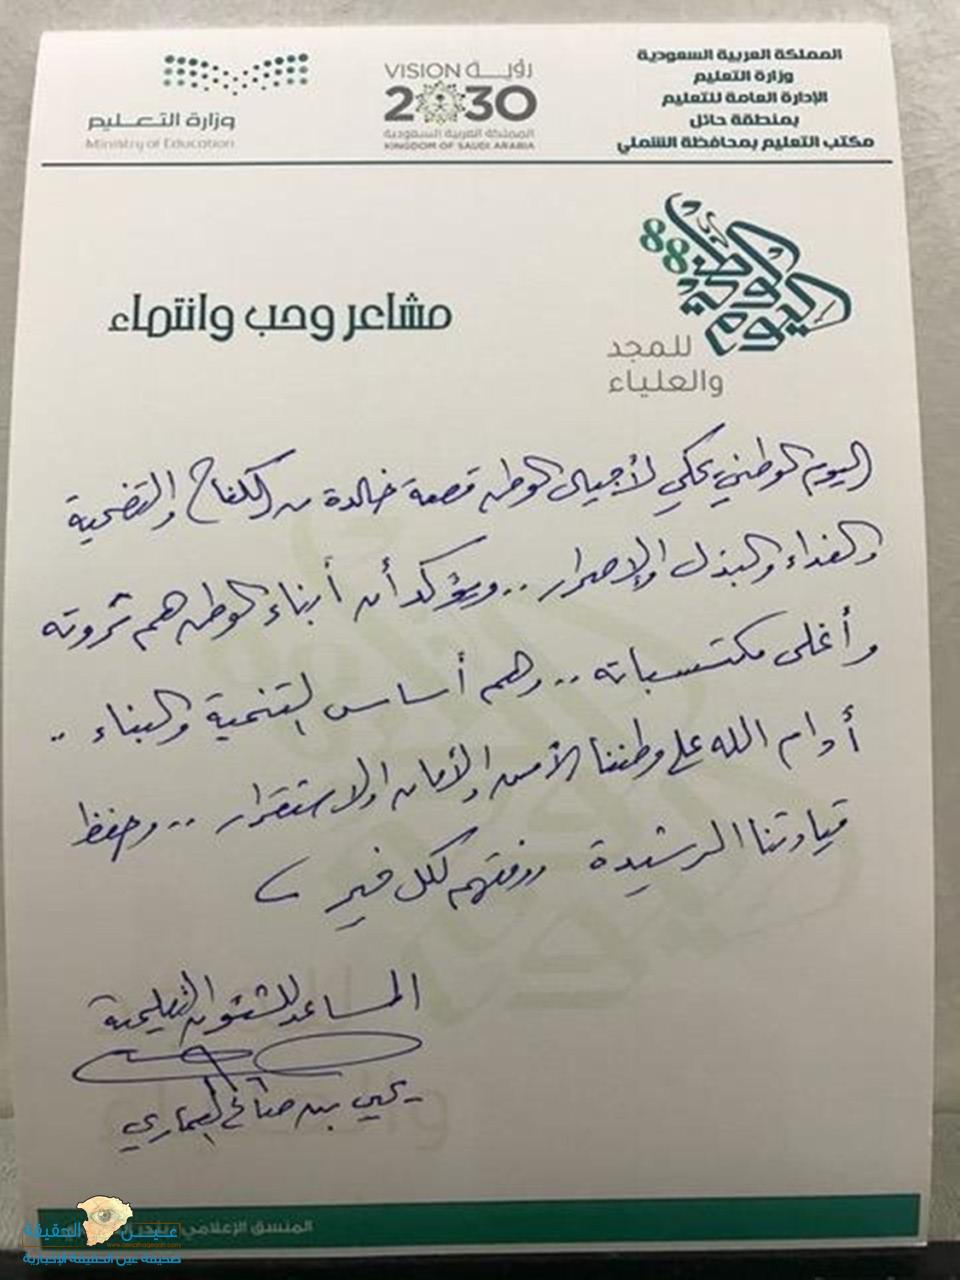 المملكة العربية السعودية
وزارة التعليم
الإدارة العامة للتعليم
بمنطقة حائل
مكتب التعليم بمحافظة الشملي
VISION رؤية
2030
المملكة العربية السعودية
KINGDOM OF SAUDI ARABIA
وزارة التعليم
Ministry of Education
اليوم الوطني 88
للمجد
والعلياء
مشاعر وحب وانتماء
اليوم الوطني يحكي لأجيال الوطن قصة خالدة من الكفاح والتضحية
والفداء والبذل والإصرار .. ويؤكد أن أبناء الوطن هم ثروته
وأغلى مكتسباته .. وهم أساس التنمية والبناء ..
أدام الله على وطننا الأمن والأمان والاستقرار .. وحفظ
قيادتنا الرشيدة ووفقهم لكل خير
المساعد للشئون التعليمية
يحيى بن صالح
المنسق الإعلامي
عين الحقيقة
صحيفة عين الحقيقة الإخبارية